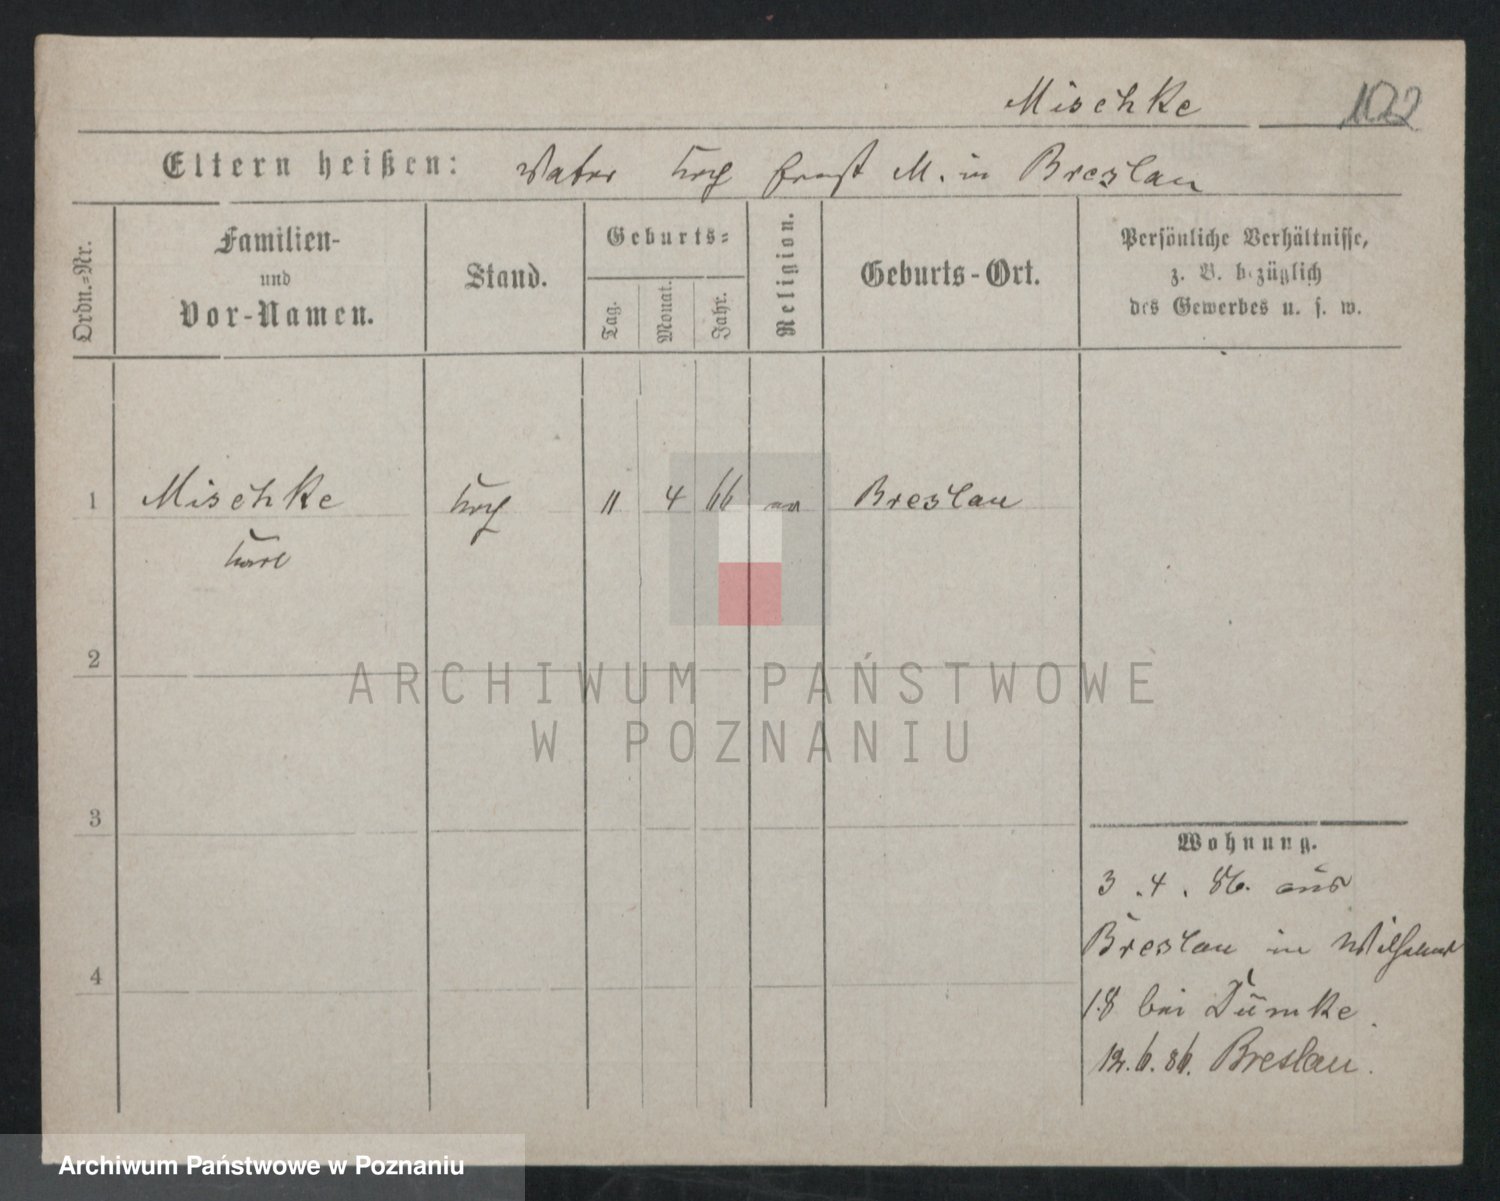 Mischke 102
Eltern heißen: Vater Ernst M. in Breslau
Ordn.-Nr.
Familien-
und
Vor-Namen.
Stand.
Geburts-
Tag.
Monat.
Jahr.
Religion.
Geburts-Ort.
Persönliche Verhältnisse,
z. B. bezüglich
des Gewerbes u. s. w.
1 Mischke 11 4 66 Breslau
Karl
2
3
4
Wohnung.
3.4.86. aus
Breslau in
18 bei Dümke.
12.6.86. Breslau.
ARCHIWUM PAŃSTWOWE
W POZNANIU
Archiwum Państwowe w Poznaniu